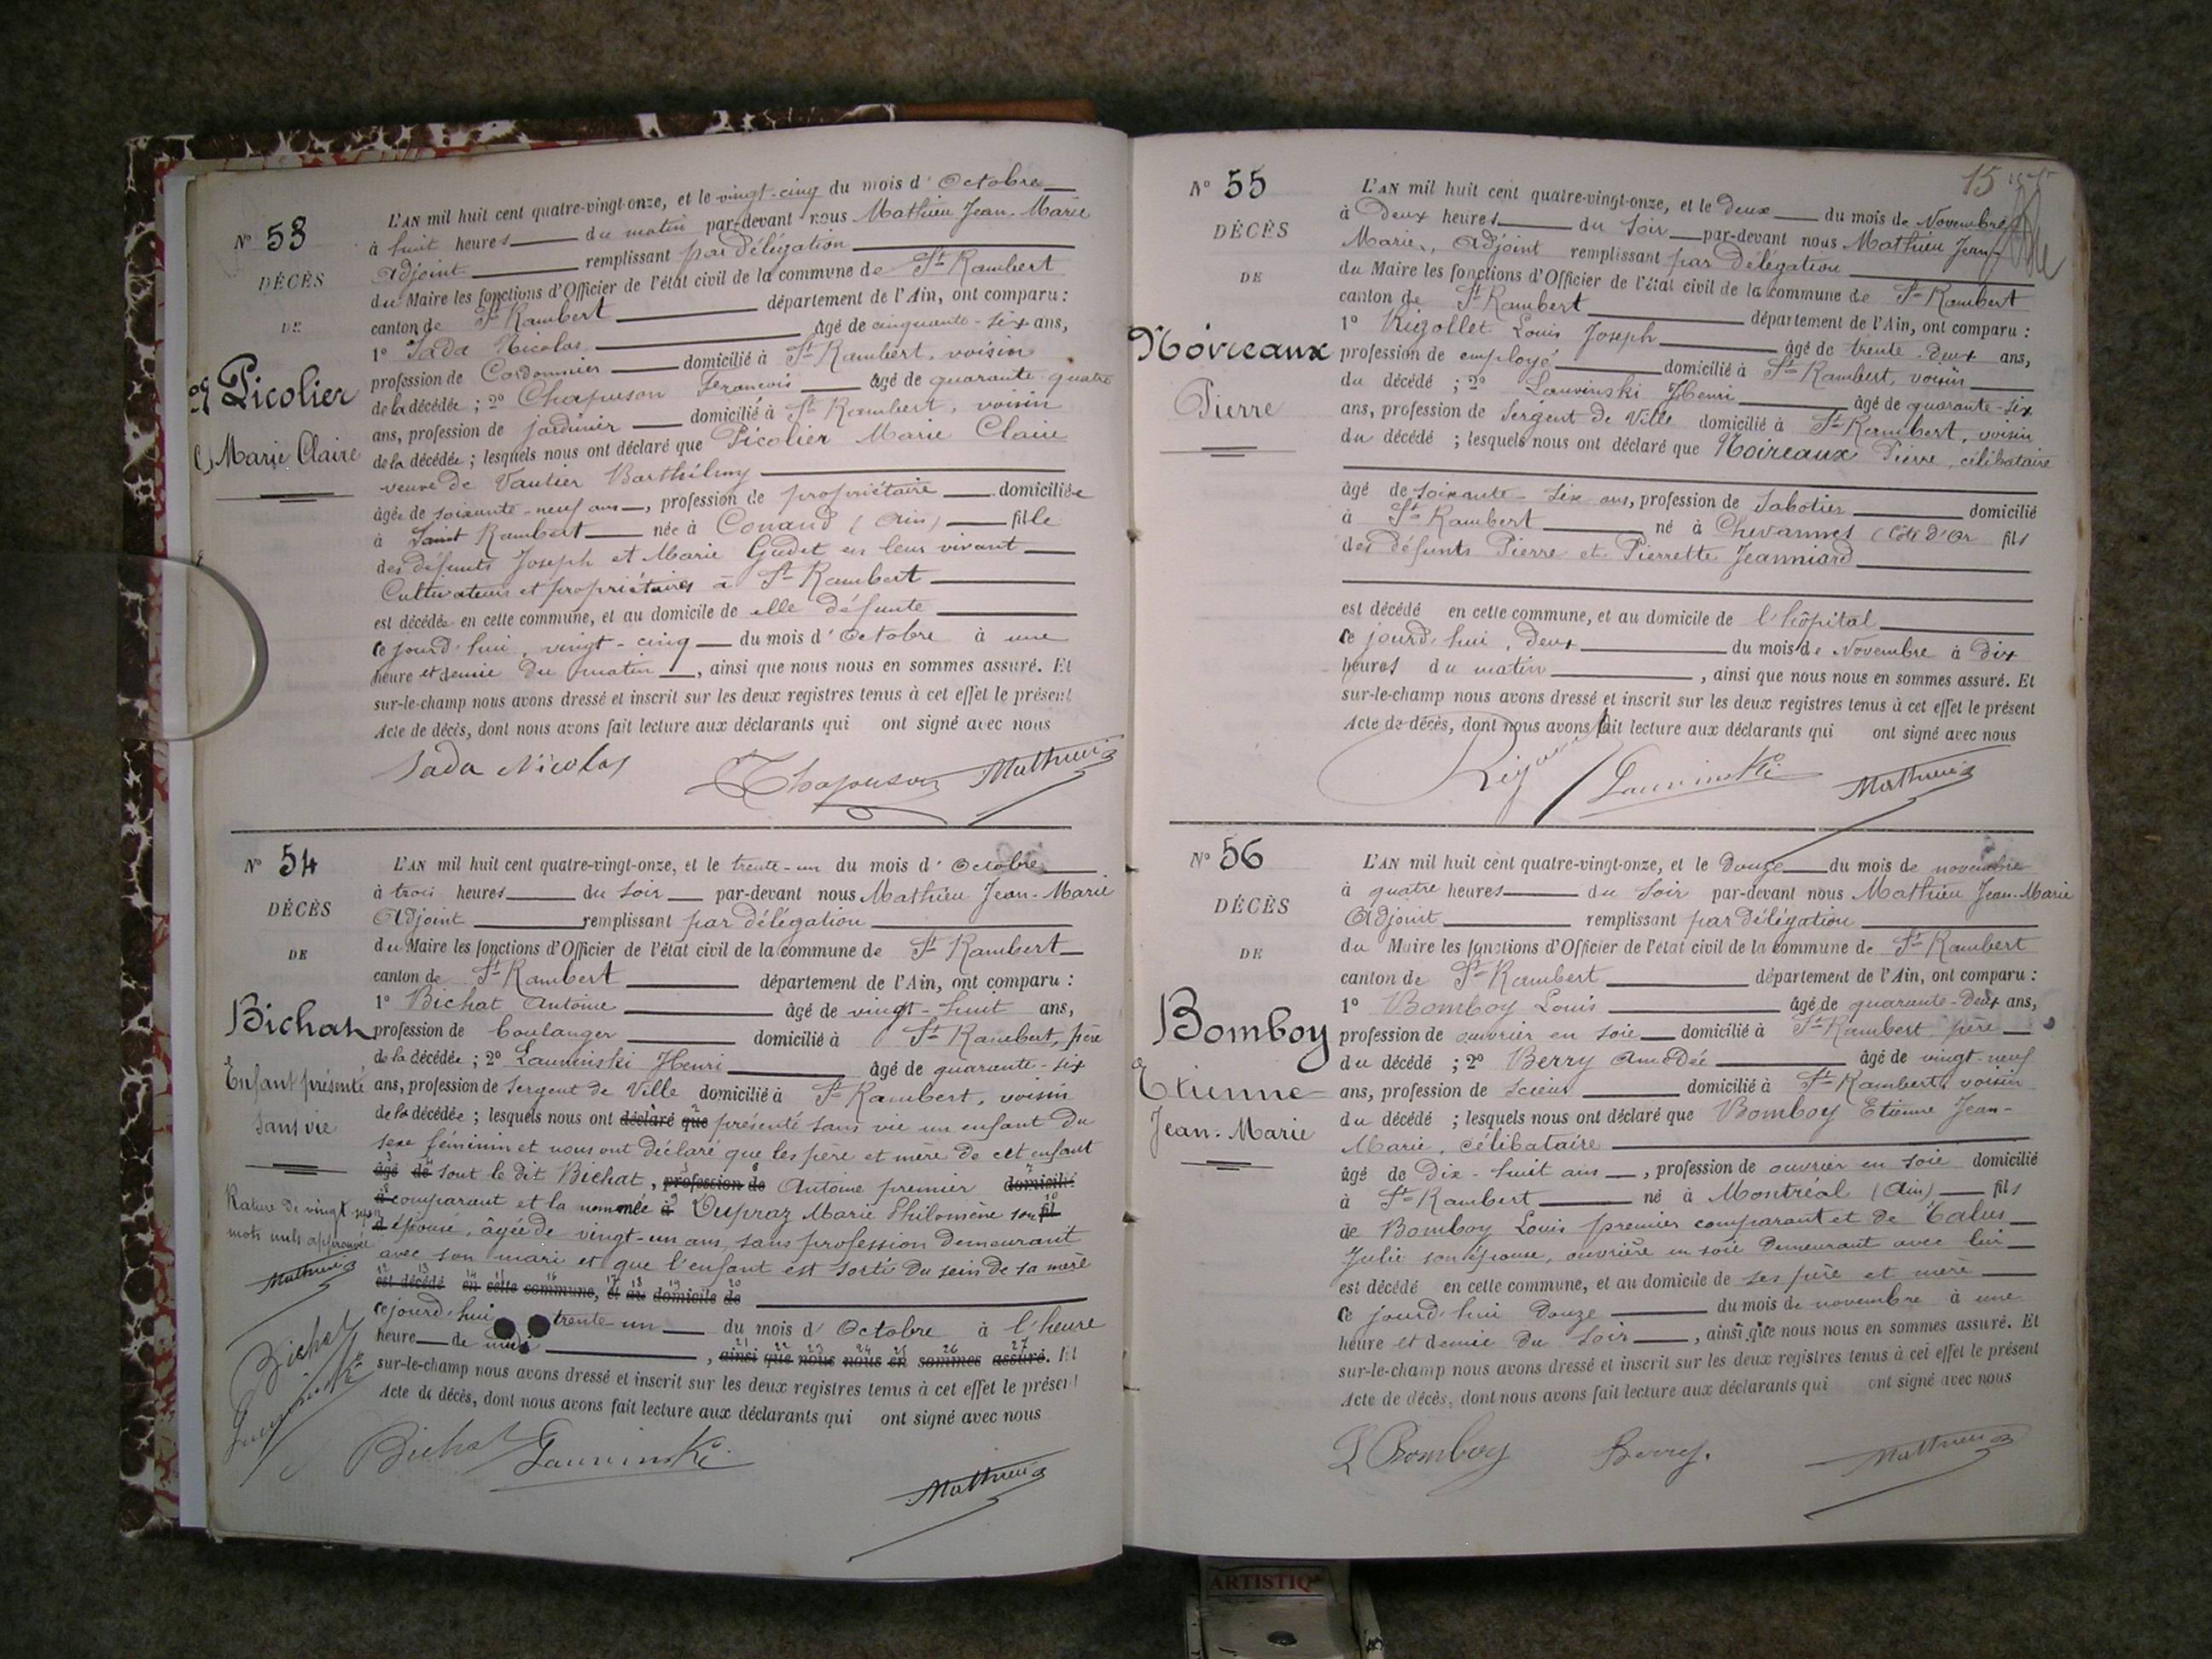 N° 53
DÉCÈS
DE
Picolier
Marie Claire
L'AN mil huit cent quatre-vingt-onze, et le vingt-cinq du mois d'Octobre
à huit heures du matin par-devant nous Mathieu Jean-Marie
Adjoint remplissant par délégation
du Maire les fonctions d'Officier de l'état civil de la commune de St Rambert
canton de St Rambert département de l'Ain, ont comparu :
1° Jada Nicolas âgé de cinquante-six ans,
profession de Cordonnier domicilié à St Rambert, voisin
de la décédée ; 2° Chapuson François âgé de quarante-quatre
ans, profession de jardinier domicilié à St Rambert, voisin
de la décédée ; lesquels nous ont déclaré que Picolier Marie Claire
veuve de Vautier Barthélmy
âgée de soixante-neuf ans, profession de propriétaire domiciliée
à Saint Rambert née à Conand (Ain) fille
des défunts Joseph et Marie Gudet en leur vivant
Cultivateurs et propriétaires à St Rambert
est décédée en cette commune, et au domicile de elle défunte
ce jourd'hui, vingt-cinq du mois d'Octobre à une
heure et demie du matin, ainsi que nous nous en sommes assuré. Et
sur-le-champ nous avons dressé et inscrit sur les deux registres tenus à cet effet le présent
Acte de décès, dont nous avons fait lecture aux déclarants qui ont signé avec nous
Jada Nicolas Chapuson Mathieu
N° 54
DÉCÈS
DE
Bichat
Enfant présenté
sans vie
Rature de vingt sept
mots nuls approuvée
Mathieu
Bichat
Lauvinski
L'AN mil huit cent quatre-vingt-onze, et le trente-un du mois d'Octobre
à trois heures du soir par-devant nous Mathieu Jean-Marie
Adjoint remplissant par délégation
du Maire les fonctions d'Officier de l'état civil de la commune de St Rambert
canton de St Rambert département de l'Ain, ont comparu :
1° Bichat Antoine âgé de vingt-huit ans,
profession de boulanger domicilié à St Rambert, père
de la décédée ; 2° Lauvinski Henri âgé de quarante-six
ans, profession de Sergent de Ville domicilié à St Rambert, voisin
de la décédée ; lesquels nous ont déclaré que présenté sans vie un enfant du
sexe féminin et nous ont déclaré que les père et mère de cet enfant
âgé de sont le dit Bichat, profession de Antoine premier domicilié
à comparant et la nommée à Dupraz Marie Philomène son fil
d épouse, âgée de vingt-un ans, sans profession demeurant
avec son mari et que l'enfant est sorti du sein de sa mère
est décédé en cette commune, et au domicile de
ce jourd'hui trente-un du mois d'Octobre à l'heure
heure de midi, ainsi que nous nous en sommes assuré. Et
sur-le-champ nous avons dressé et inscrit sur les deux registres tenus à cet effet le présent
Acte de décès, dont nous avons fait lecture aux déclarants qui ont signé avec nous
Bichat Lauvinski
Mathieu
15
N° 55
DÉCÈS
DE
Noireaux
Pierre
L'AN mil huit cent quatre-vingt-onze, et le deux du mois de Novembre
à Deux heures du soir par-devant nous Mathieu Jean-
Marie, Adjoint remplissant par Délégation
du Maire les fonctions d'Officier de l'état civil de la commune de St Rambert
canton de St Rambert département de l'Ain, ont comparu :
1° Rigollet Louis Joseph âgé de trente-deux ans,
profession de employé domicilié à St Rambert, voisin
du décédé ; 2° Lauvinski Henri âgé de quarante-six
ans, profession de Sergent de Ville domicilié à St Rambert, voisin
du décédé ; lesquels nous ont déclaré que Noireaux Pierre, célibataire
âgé de soixante-six ans, profession de Sabotier domicilié
à St Rambert né à Chevannes (Côte d'Or fils
des défunts Pierre et Pierrette Jeanniard
est décédé en cette commune, et au domicile de l'hôpital
ce jourd'hui, deux du mois de Novembre à dix
heures du matin, ainsi que nous nous en sommes assuré. Et
sur-le-champ nous avons dressé et inscrit sur les deux registres tenus à cet effet le présent
Acte de décès, dont nous avons fait lecture aux déclarants qui ont signé avec nous
Lauvinski Mathieu
N° 56
DÉCÈS
DE
Bomboy
Etienne
Jean-Marie
L'AN mil huit cent quatre-vingt-onze, et le Douze du mois de novembre
à quatre heures du soir par-devant nous Mathieu Jean-Marie
Adjoint remplissant par délégation
du Maire les fonctions d'Officier de l'état civil de la commune de St Rambert
canton de St Rambert département de l'Ain, ont comparu :
1° Bomboy Louis âgé de quarante-deux ans,
profession de ouvrier en soie domicilié à St Rambert, père
du décédé ; 2° Berry Amédée âgé de vingt-neuf
ans, profession de scieur domicilié à St Rambert, voisin
du décédé ; lesquels nous ont déclaré que Bomboy Etienne Jean-
Marie, célibataire
âgé de Dix-huit ans, profession de ouvrier en soie domicilié
à St Rambert né à Montréal (Ain) fils
de Bomboy Louis premier comparant et de
Julie son épouse, ouvrière en soie demeurant avec lui
est décédé en cette commune, et au domicile de ses père et mère
ce jourd'hui Douze du mois de novembre à une
heure et demie du soir, ainsi que nous nous en sommes assuré. Et
sur-le-champ nous avons dressé et inscrit sur les deux registres tenus à cet effet le présent
Acte de décès, dont nous avons fait lecture aux déclarants qui ont signé avec nous
L Bomboy Berry. Mathieu
ARTISTIQ